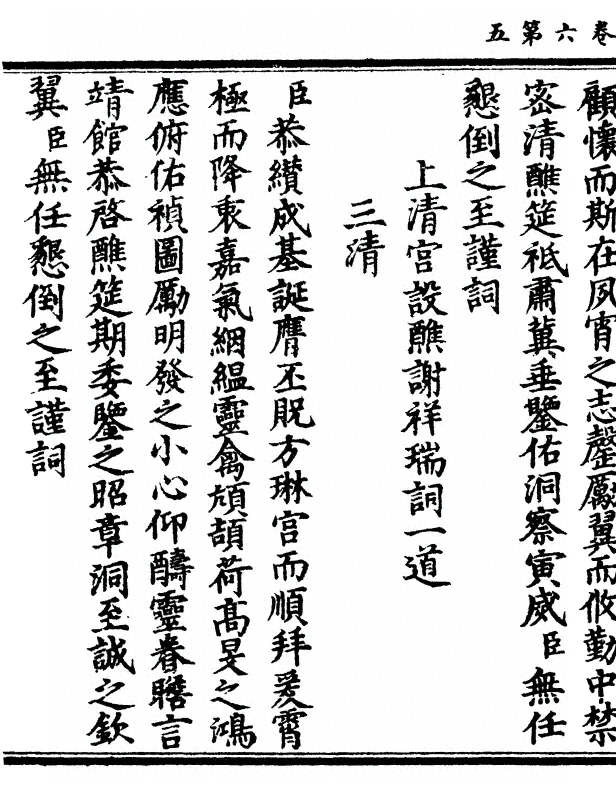 卷六第五
顧懷而斯在夙宵之志罄厲翼而攸勤中禁
密清醮筵祗肅冀垂鑒佑洞察寅威臣無任
懇倒之至謹詞
上清宮設醮謝祥瑞詞一道
三清
臣恭纘成基誕膺丕貺方琳宮而順拜爰霄
極而降衷嘉氣絪縕靈禽頏頡荷高旻之鴻
應俯佑禎圖勵明發之小心仰醻靈眷瞻言
靖館恭啓醮筵期委鑒之昭章洞至誠之欽
翼臣無任懇倒之至謹詞